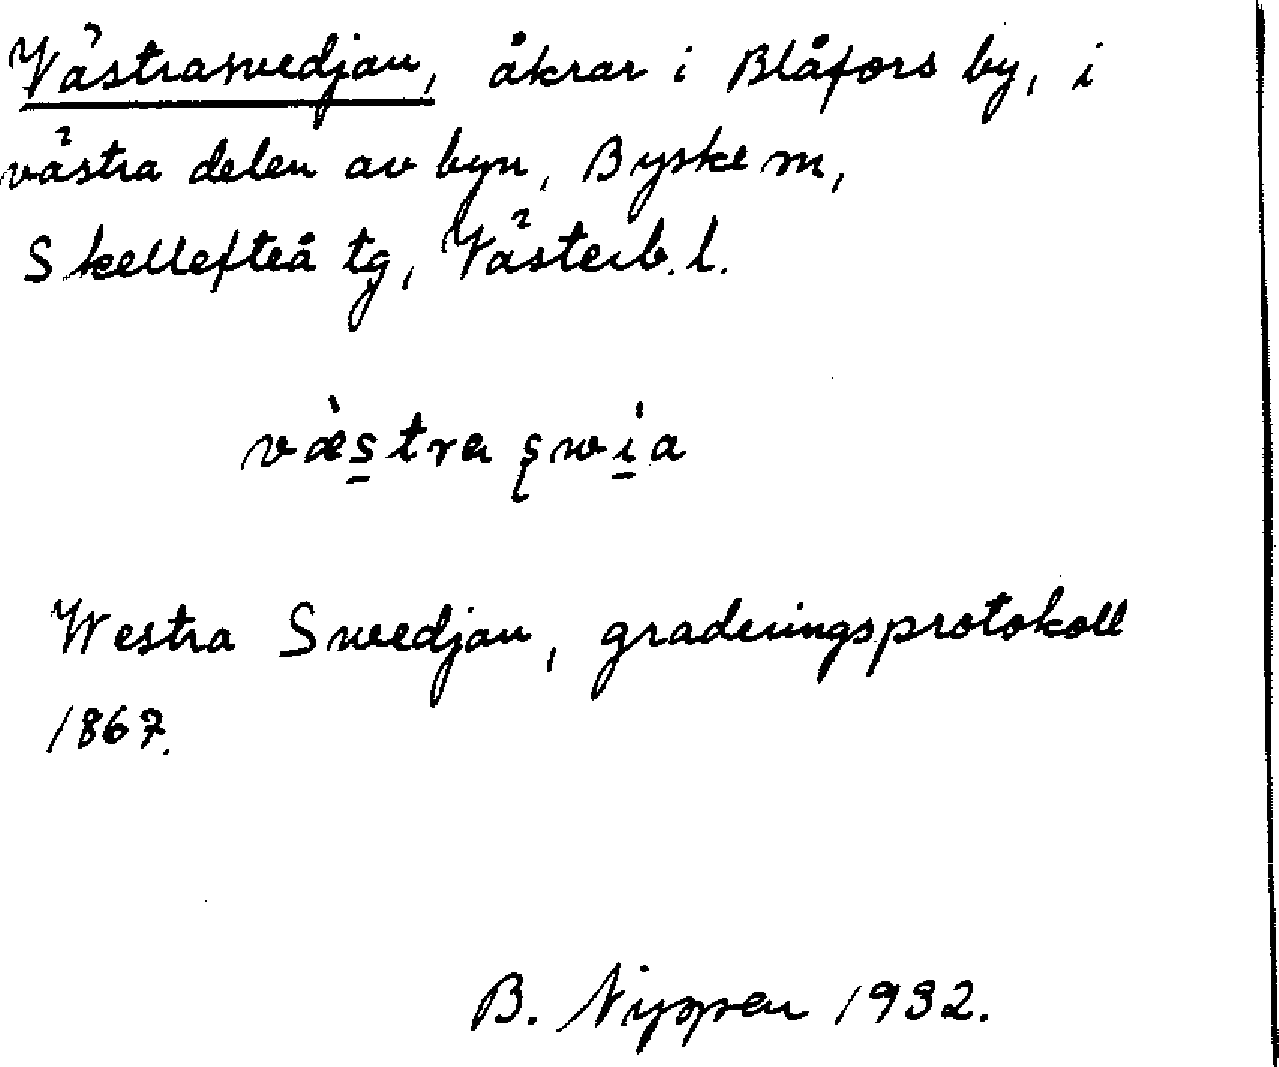 Västrasvedjan, åkrar i Blåfors by, i
västra delen av byn, Byske sn,
Skellefteå tg, Västerb. l.
væ̀s̱tra ʂwi̱̇a
Westra Swedjan, graderingsprotokoll
1867.
B. Nyppen 1932.